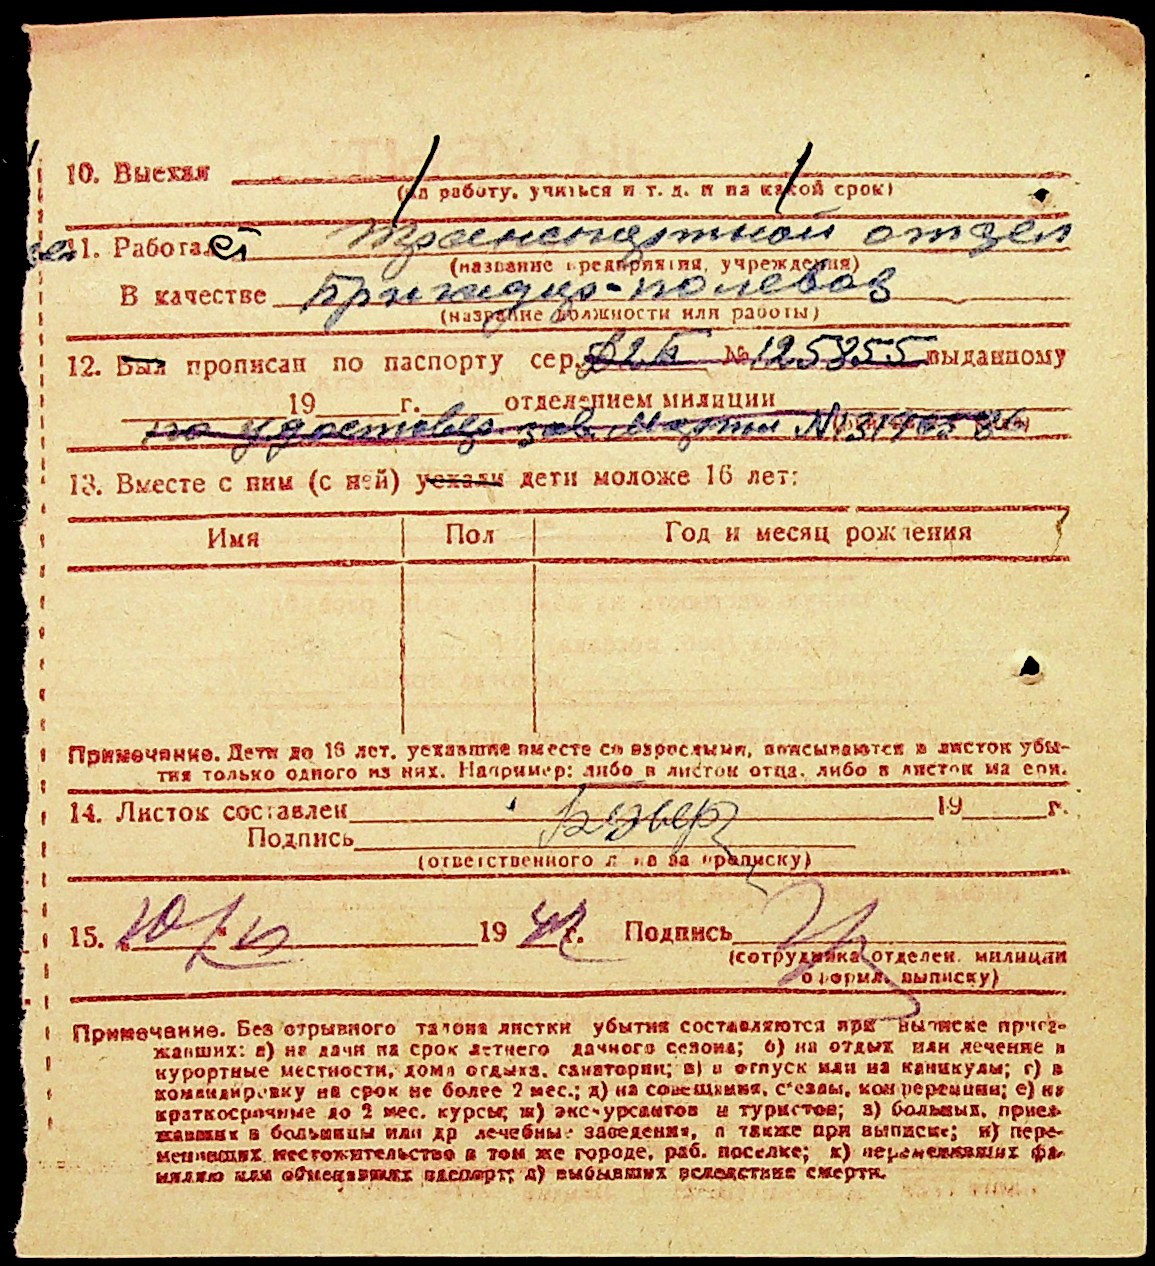 10. Выехал
(на работу, учиться и т. д. и на какой срок)
11. Работал транспортной отдел
(название предприятия, учреждения)
В качестве
(название должности или работы)
12. Был прописан по паспорту сер. № 125355 выданному
19 г. отделением милиции
по удостовер. зав. Марти №
13. Вместе с ним (с ней) уехали дети моложе 16 лет:
Имя Пол Год и месяц рождения
Примечание. Дети до 16 лет, уехавшие вместе со взрослыми, вписываются в листок убы-
тия только одного из них. Например: либо в листок отца, либо в листок матери.
14. Листок составлен 19 г.
Подпись
(ответственного лица за прописку)
15. 19 г. Подпись
(сотрудника отделен. милиции
оформл. выписку)
Примечание. Без отрывного талона листки убытия составляются при выписке приез-
жавших: а) на дачи на срок летнего дачного сезона; б) на отдых или лечение в
курортные местности, дома отдыха, санатории; в) в отпуск или на каникулы; г) в
командировку на срок не более 2 мес.; д) на совещания, съезды, конференции; е) на
краткосрочные до 2 мес. курсы; ж) экскурсантов и туристов; з) больных, приез-
жавших в больницы или др лечебные заведения, а также при выписке; и) пере-
менивших местожительство в том же городе, раб. поселке; к) переменивших фа-
милию или обменявших паспорт; л) выбывших вследствие смерти.